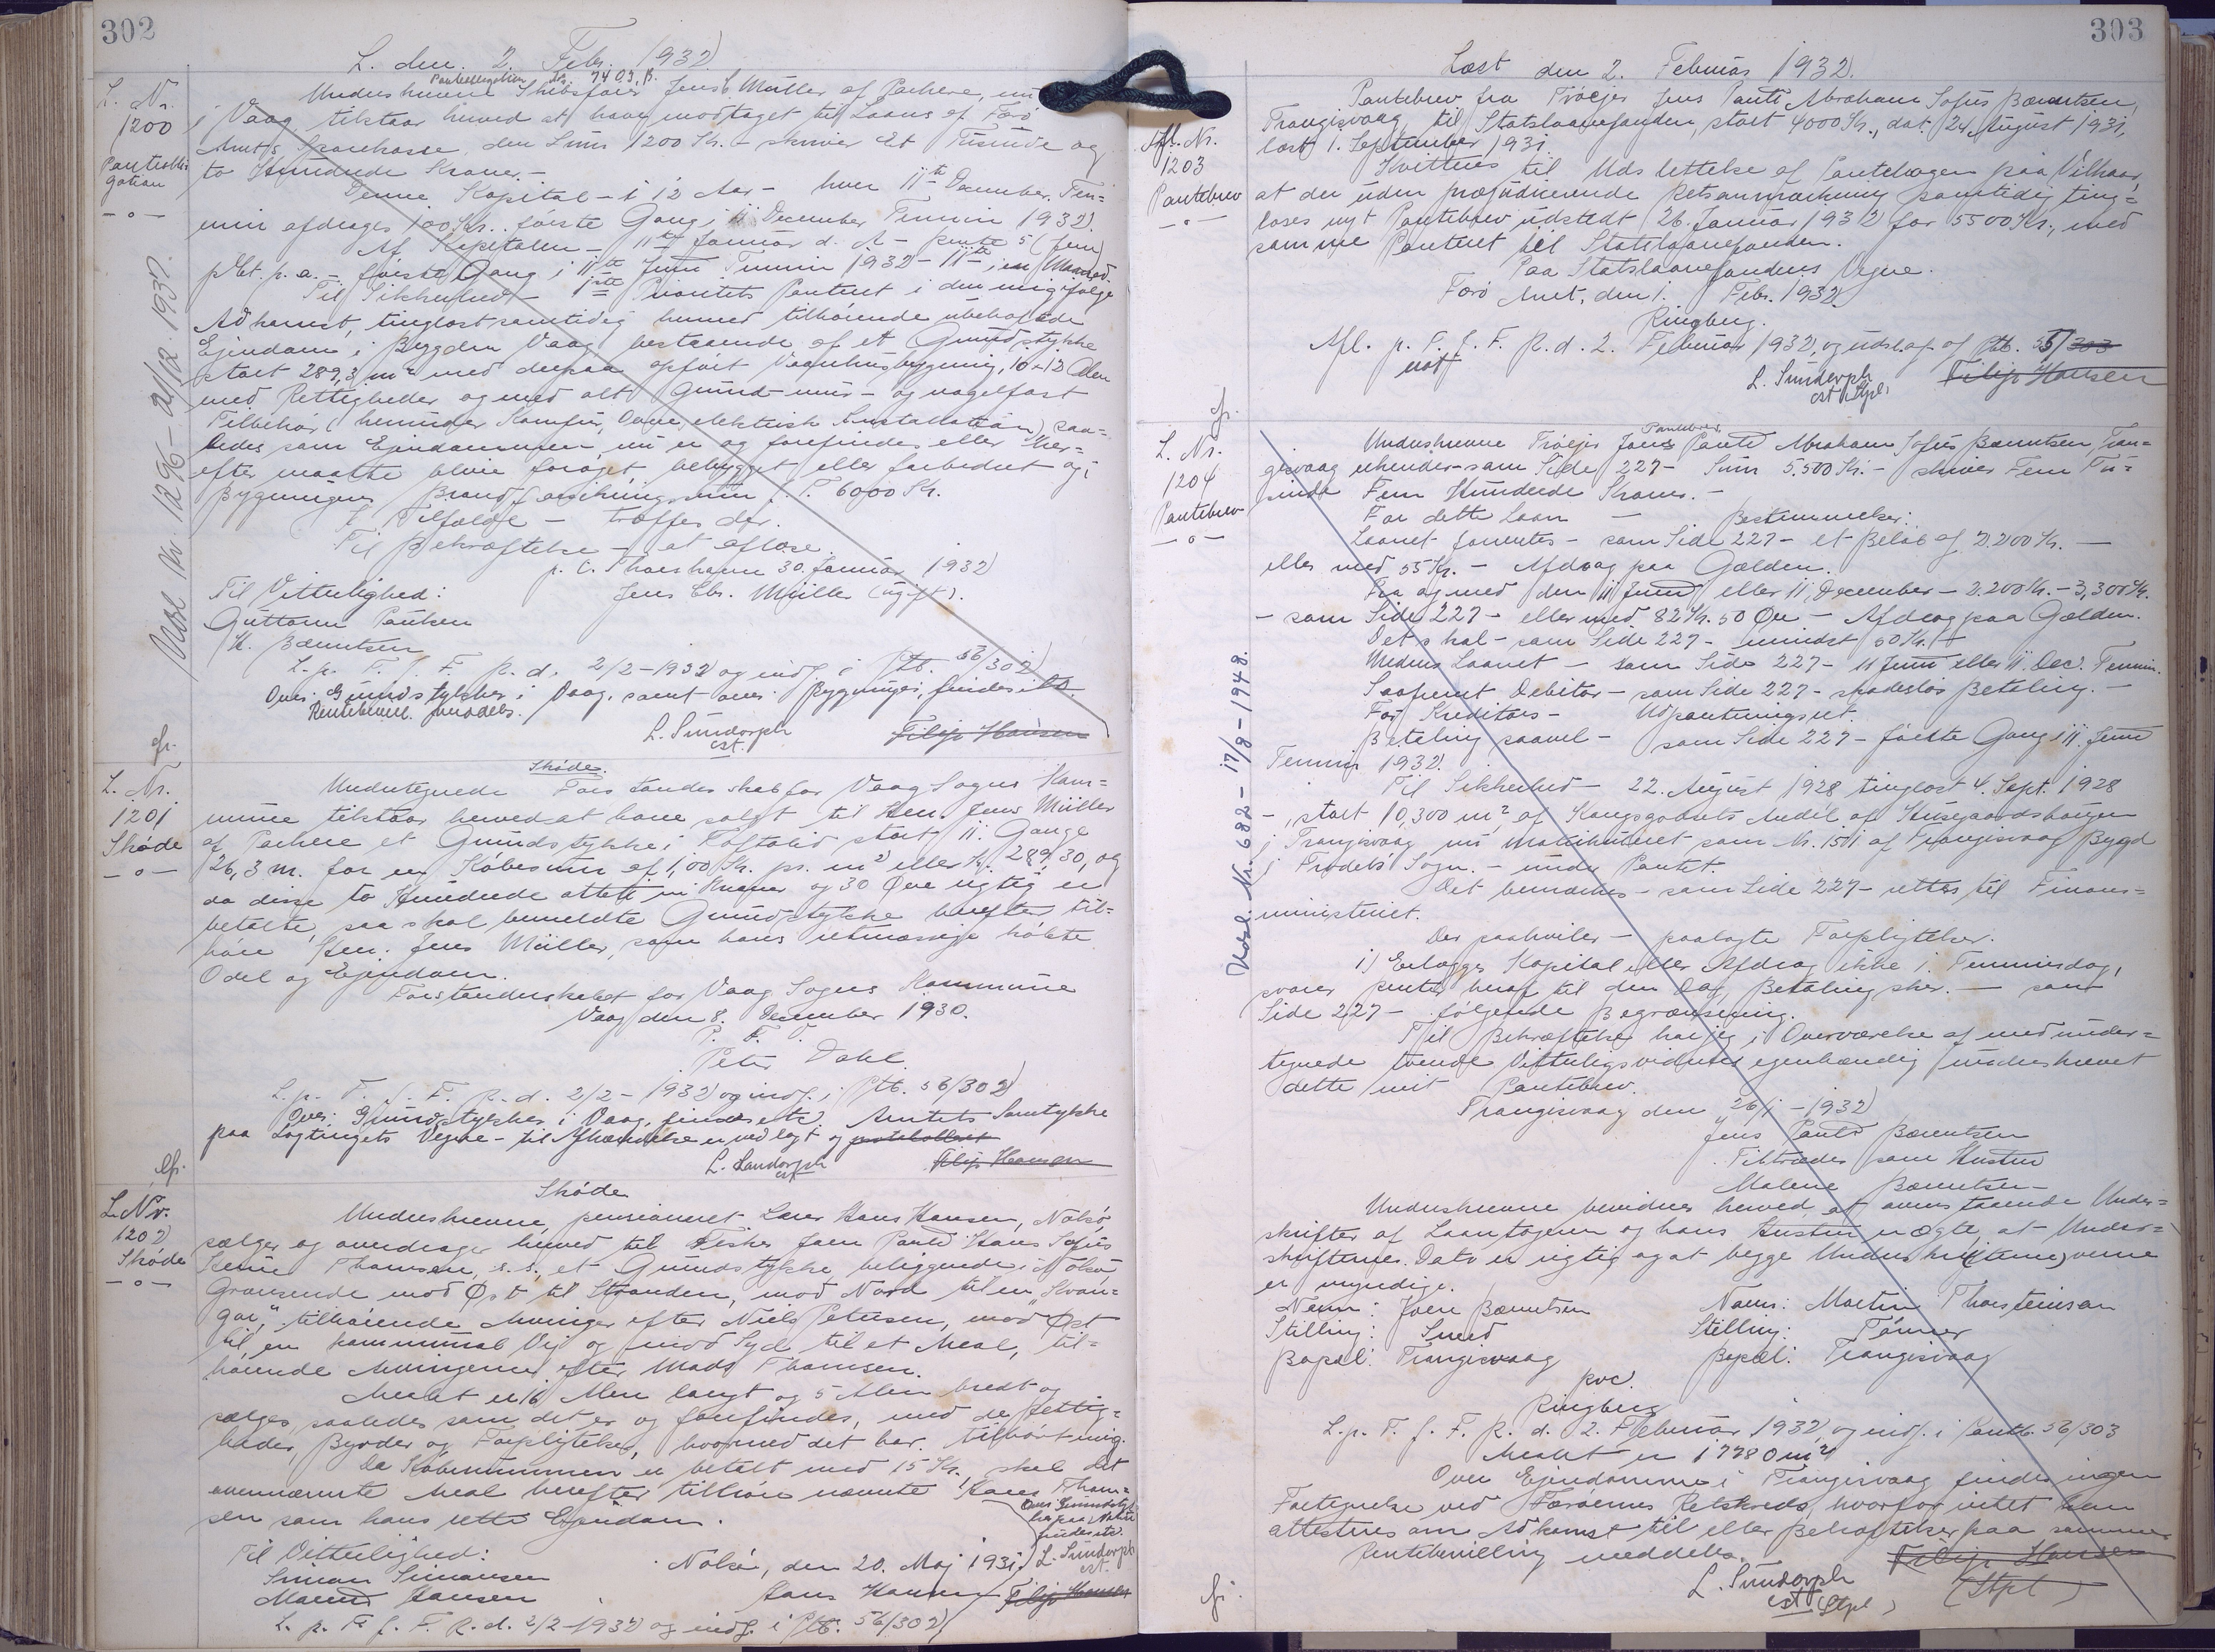 302
L. den 2. Febr. 1932
L. Nr.
1200
Panteobli-
gation
Pantobligation
Underskrevne Skibsfører Jens E. Müller af Porkere, nu
i Vaag, tilstaar herved at have modtaget til Laans af Færø
Amts Sparekasse den Sum 1200 Kr. - skriver Et Tusinde og
to Hundrede Kroner. -
Denne Kapital - i 12 Aar - hver 11te December Ter-
min afdrages 100 Kr. første Gang i 11 December Termin 1932.
Af Kapitalen - 11te Januar d. A. - rente 5 (fem)
pCt. p. a. - første Gang i 11te Juni Termin 1932 - 11te i en Maaned
Til Sikkerhed - 1ste Prioritets Panteret i den mig ifølge
Adkomst, tinglæst samtidig hermed tilhørende ubehæftede
Ejendom i Bygden Vaag bestaaende af et Grundstykke
stort 289,3 m² med derpaa opført Vaaningshusbygning, 10 x 12 Alen
med Rettigheder og med alt grund- mur- og nagelfast
Tilbehør (herunder Komfur, Ovne, elektrisk Installation) saa-
ledes som Ejendommen nu er og forefindes eller her-
efter maatte blive forøget, bebygget eller forbedret og i
Bygningens Brandforsikringssum f. T. 6000 Kr.
I Tilfælde - træffes der.
Til Bekræftelse - at aflæse.
p. t. Thorshavn 30. Januar 1932
Til Vitterlighed: Jens Ebr. Müller (ugift).
Guttorm Poulsen
K. Bærentsen
L. p. T. f. F. R. d. 2/2 - 1932 og indf. i Ptb. 56/302
Over Grundstykker i Vaag, samt over Bygninger, findes etc.
Rentebevil. meddeles.
L. Sundorph Filip Hansen
cst.
Udsl. Nr. 1296 - 21/12 1937.
cfr.
L. Nr.
1201
Skøde
Skøde.
Undertegnede Forstanderskab for Vaag Sogns Kom-
mune tilstaar herved at have solgt til Hen. Jens Müller
af Porkere et Grundstykke i Toftolid stort 11 Gange
26,3 m. for en Købesum af 1,00 Kr. pr. m² eller Kr. 289,30, og
da disse to Hundrede otteti ni Kroner og 30 Øre rigtig er
betalte, saa skal bemeldte Grundstykke herefter til-
høre Hen. Jens Müller, som hans retmæssige købte
Odel og Ejendom.
Forstanderskabet for Vaag Sogns Kommune
Vaag den 8. December 1930.
P. F. V.
Peter Dahl.
L. p. T. f. F. R. d. 2/2 - 1932 og indf. i Ptb. 56/302
Over Grundstykker i Vaag, findes etc. Amtets Samtykke
paa Lagtingets Vegne - til Afhændelse er vedlagt og protokolleret
L. Sundorph Filip Hansen
cst
cfr.
L. Nr.
1202
Skøde
Skøde
Underskrevne, pensioneret Lærer Hans Hansen, Nolsø,
sælger og overdrager herved til Fisker Joen Pauli Hans Sofus
Thomsen, s. s., et Grundstykke beliggende i Nolsø
Grænsende mod Øst til Stranden, mod Nord til en "Hvan-
gar", tilhørende Arvinger efter Niels Petersen, mod Øst
til en kommunal Vej og mod Syd til et Areal, til-
hørende Arvingerne efter Mads Thomsen.
Arealet er 16 Alen langt og 5 Alen bredt og
sælges, saaledes som det er og forefindes, med de Rettig-
heder, Byrder og Forpligtelser, hvormed det har tilhørt mig.
Da Købesummen er betalt med 15 Kr. skal det
ovennævnte Areal herefter tilhøre nævnte Hans Thom-
sen som hans rette Ejendom.
Over Grundstyk-
ker paa Nolsø
findes etc.
L. Sundorph
cst.
Til Vitterlighed: Nolsø, den 20. Maj 1931
Simon Simonsen
Hansen Hans Hansen Filip Hansen
L. p. T. f. F. R. d. 2/2 - 1932 og indf. i Ptb. 56/302
303
Læst den 2. Februar 1932.
Nr.
1203
Pantebrev
Pantebrev fra Trøejer Jens Pauli Abraham Sofus Bærentsen,
Trangisvaag til Statslaanefonden, stort 4000 Kr., dat. 24 August 1931,
læst 1. September 1931.
Kvitteres til Udslettelse af Pantebogen paa Vilkaar,
at der uden præjudicerende Retsanmærkning samtidig ting-
læses nyt Pantebrev udstedt 26. Januar 1932 for 5500 Kr., med
samme Panteret til Statslaanefonden.
Paa Statslaanefondens Vegne.
Færø Amt, den 1. Febr. 1932
Ringberg.
Afl. p. T. f. F. R. d. 2. Februar 1932, og udsl. af Ptb. 55/303
L. Sundorph Filip Hansen
cst (Stpl)
cfr.
L. Nr.
1204
Pantebrev
Pantebrev
Underskrevne Trøejer Jens Pauli Abraham Sofus Bærentsen, Tran-
gisvaag erkender - som Side 227 - Sum 5.500 Kr. - skriver Fem Tu-
sinde Fem Hundrede Kroner. -
For dette Laan - Bestemmelser:
Laanet forrentes - som Side 227 - et Beløb af 2.200 Kr. -
eller med 55 Kr. - Afdrag paa Gælden.
Fra og med den 11 Juni eller 11. December - 2.200 Kr. - 3,300 Kr.
- som Side 227 - eller med 82 Kr. 50 Øre - Afdrag paa Gælden.
Det skal - som Side 227 - mindst 50 Kr. -
Medens Laanet - som Side 227 - 11 Juni eller 11. Dec. Termin.
Saafremt Debitor - som Side 227 - skadesløs Betaling. -
For Kreditors - Udpantningsret.
Betaling saavel - som Side 227 - første Gang i 11. Juni
Termin 1932.
Til Sikkerhed - 22. August 1928 tinglæst 4. Sept. 1928
-, stort 10,300 m² af Kongsgodsets Andel af Husegaardshaugen
i Trangisvaag nu matrikuleret som Nr. 151 af Trangisvaag Bygd
i Frodebø Sogn. - under Pantet.
Det bemærkes - som Side 227 - rettes til Finans-
ministeriet.
Der paahviler - paalagte Forpligtelser.
1) Erlægges Kapital eller Afdrag ikke i Terminsdag,
svares Renter heraf til den Dag, Betaling sker. - som
Side 227 - følgende Begrænsning.
Til Bekræftelse har jeg i Overværelse af medunder-
tegnede tvende Vitterligsvidner egenhændig underskrevet
dette mit Pantebrev.
Trangisvaag den 26/1 - 1932
Jens Pauli Bærentsen
Tiltrædes som Hustru
Malene Bærentsen
Underskrevne bevidner herved, at ovenstaaende Under-
skrifter af Laantageren og hans Hustru er ægte, at Under-
skrifternes Dato er rigtig og at begge Underskriverne
er myndige.
Navn: Joen Bærentsen Navn: Martin Thorsteinson
Stilling: Smed Stilling: Tømrer
Bopæl: Trangisvaag Bopæl: Trangisvaag
Ringberg
L. p. T. f. F. R. d. 2. Februar 1932, og indf. i Pantb. 56/303
Arealet er 17780 m²
Over Ejendomme i Trangisvaag findes ingen
Fortegnelse ved Færøernes Retskreds, hvorfor intet kan
attesteres om Adkomst til eller Behæftelser paa samme.
Rentebevilling meddeles.
Filip Hansen
L. Sundorph (Stpl)
cst (Stpl)
Udsl. Nr. 682 - 17/8 - 1948.
cfr.